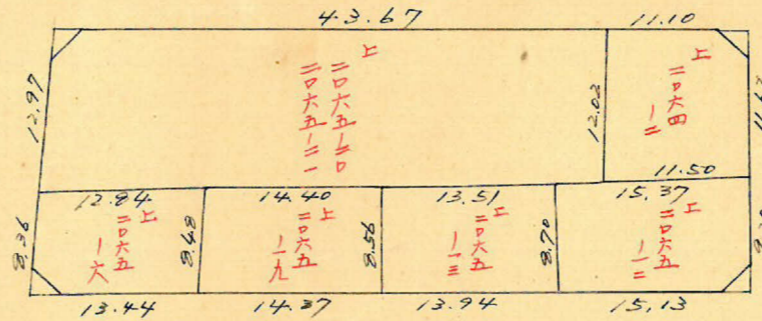 43.67
11.10
12.97
上
二〇六五ノ二〇
二〇六五ノ二一
12.02
上
二〇六四
ノ二
11.50
12.84
14.40
13.51
15.37
8.36
上
二〇六五
ノ六
8.48
上
二〇六五
ノ一九
8.56
上
二〇六五
ノ一三
8.70
上
二〇六五
ノ一二
13.44
14.37
13.94
15.13